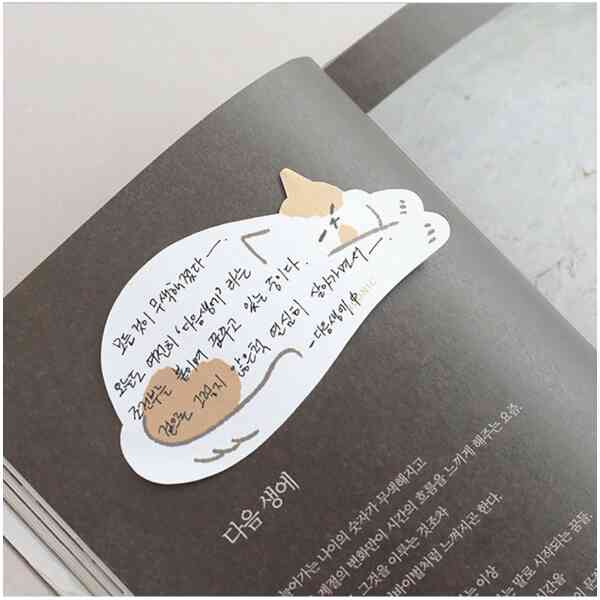 모든 것이 무색해졌다 —.
오늘도 여전히 '다음생에' 라는
조건부를 붙이며 꿈꾸고 있는 중이다.
같은 그렇지 않은척 열심히 살아가면서 —.
- 다음생에 中
NIC
다음 생에
늘어가는 나이의 숫자가 무색해지고
계절의 변화만이 시간의 흐름을 느끼게 해주는 요즘.
그것을 이루는 것조차
처럼 느껴지곤 한다.
이상
는 말로 시작되는 꿈들.
시간을